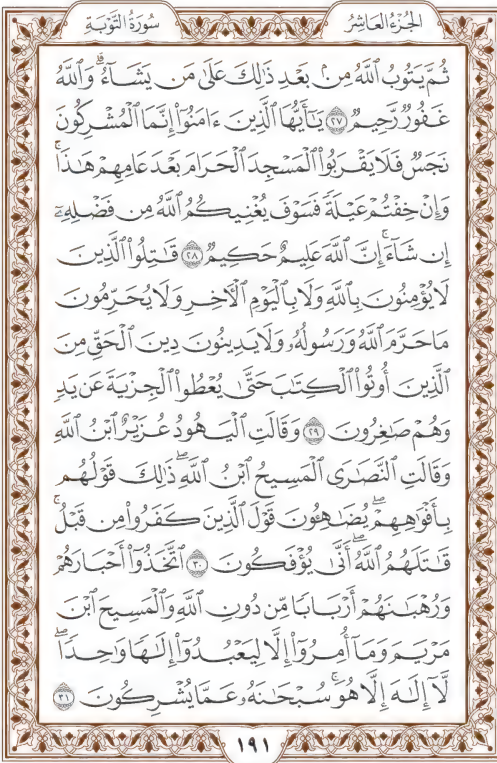 الجُزْءُ العَاشِرُ
سُورَةُ التَّوْبَةِ
ثُمَّ يَتُوبُ ٱللَّهُ مِنۢ بَعْدِ ذَٰلِكَ عَلَىٰ مَن يَشَآءُۗ وَٱللَّهُ
غَفُورٌ رَّحِيمٌ ٢٧ يَٰٓأَيُّهَا ٱلَّذِينَ ءَامَنُوٓا۟ إِنَّمَا ٱلْمُشْرِكُونَ
نَجَسٌ فَلَا يَقْرَبُوا۟ ٱلْمَسْجِدَ ٱلْحَرَامَ بَعْدَ عَامِهِمْ هَٰذَاۚ
وَإِنْ خِفْتُمْ عَيْلَةً فَسَوْفَ يُغْنِيكُمُ ٱللَّهُ مِن فَضْلِهِۦٓ
إِن شَآءَۚ إِنَّ ٱللَّهَ عَلِيمٌ حَكِيمٌ ٢٨ قَٰتِلُوا۟ ٱلَّذِينَ
لَا يُؤْمِنُونَ بِٱللَّهِ وَلَا بِٱلْيَوْمِ ٱلْءَاخِرِ وَلَا يُحَرِّمُونَ
مَا حَرَّمَ ٱللَّهُ وَرَسُولُهُۥ وَلَا يَدِينُونَ دِينَ ٱلْحَقِّ مِنَ
ٱلَّذِينَ أُوتُوا۟ ٱلْكِتَٰبَ حَتَّىٰ يُعْطُوا۟ ٱلْجِزْيَةَ عَن يَدٍ
وَهُمْ صَٰغِرُونَ ٢٩ وَقَالَتِ ٱلْيَهُودُ عُزَيْرٌ ٱبْنُ ٱللَّهِ
وَقَالَتِ ٱلنَّصَٰرَى ٱلْمَسِيحُ ٱبْنُ ٱللَّهِۖ ذَٰلِكَ قَوْلُهُم
بِأَفْوَٰهِهِمْۖ يُضَٰهِـُٔونَ قَوْلَ ٱلَّذِينَ كَفَرُوا۟ مِن قَبْلُۚ
قَٰتَلَهُمُ ٱللَّهُۖ أَنَّىٰ يُؤْفَكُونَ ٣٠ ٱتَّخَذُوٓا۟ أَحْبَارَهُمْ
وَرُهْبَٰنَهُمْ أَرْبَابًا مِّن دُونِ ٱللَّهِ وَٱلْمَسِيحَ ٱبْنَ
مَرْيَمَ وَمَآ أُمِرُوٓا۟ إِلَّا لِيَعْبُدُوٓا۟ إِلَٰهًا وَٰحِدًاۖ
لَّآ إِلَٰهَ إِلَّا هُوَۚ سُبْحَٰنَهُۥ عَمَّا يُشْرِكُونَ ٣١
١٩١